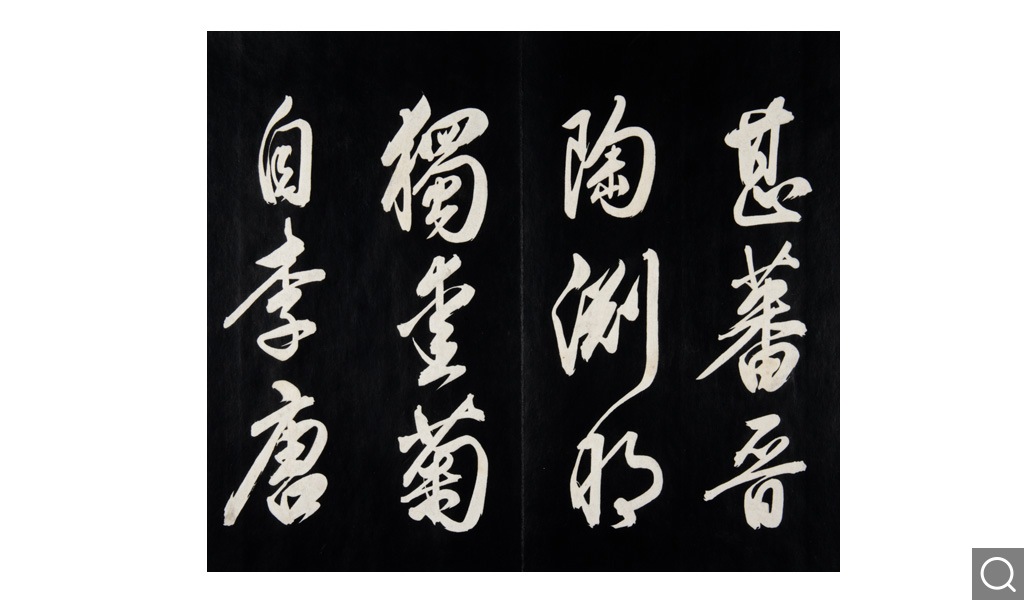 甚蕃晋
陶渊明
獨愛菊
自李唐